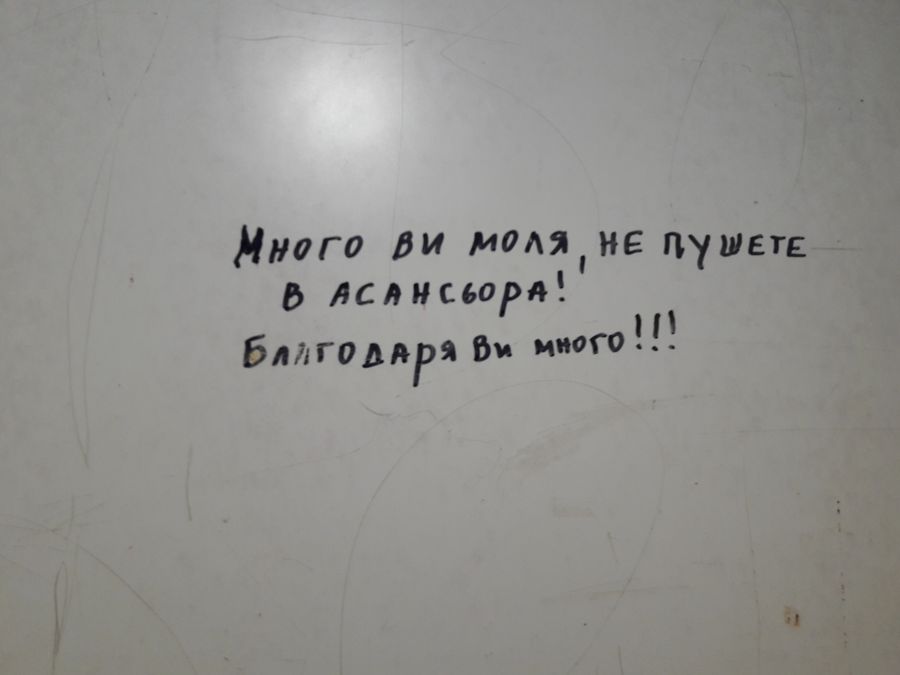 Много ви моля, не пушете
в асансьора!
Благодаря Ви много!!!